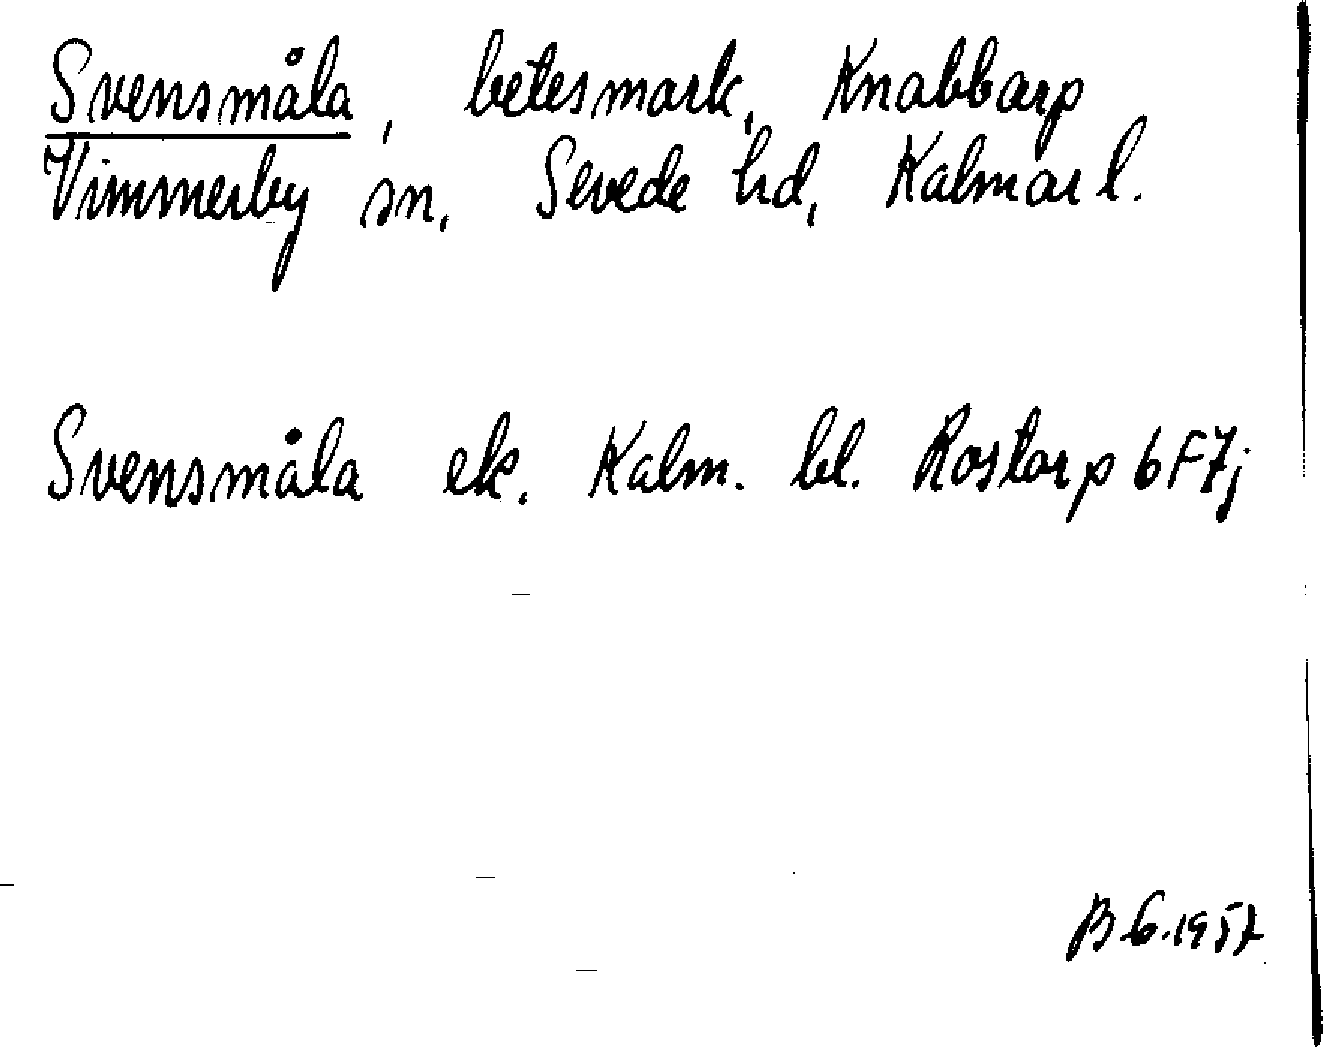 Svensmåla, betesmark, Knabbarp
Vimmerby sn, Sevede hd, Kalmar l.
Svensmåla ek. Kalm. bl. Rostorp 6F7j
B G. 1957